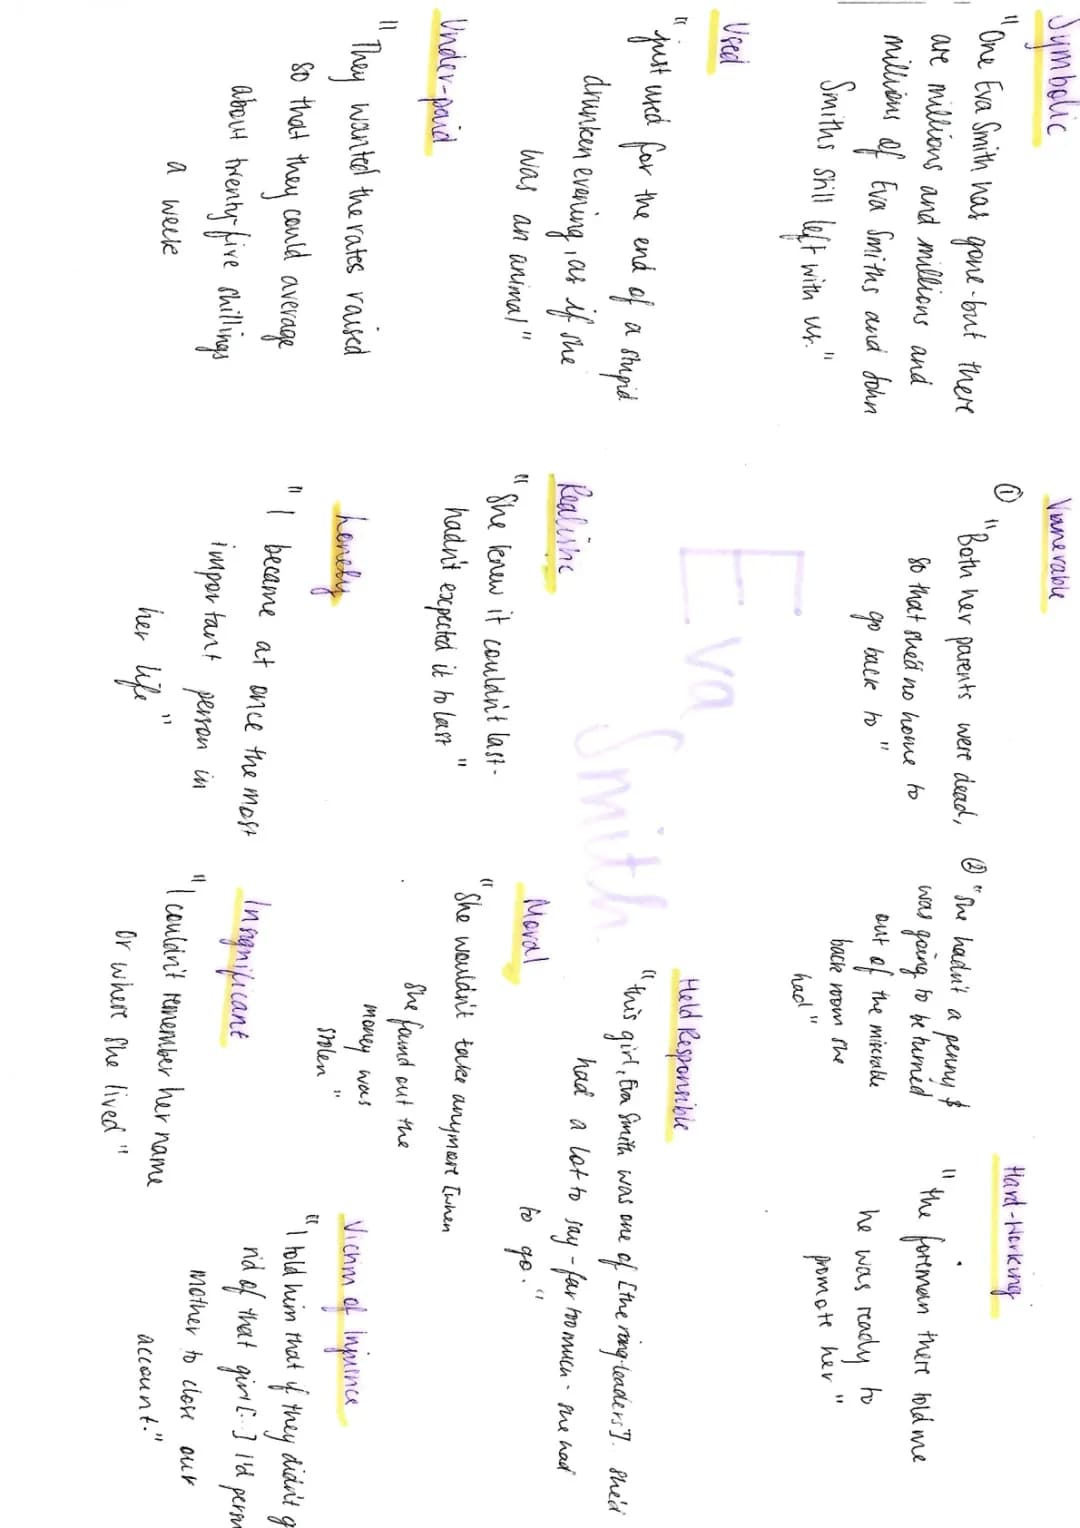 Symbolic
"One Eva Smith has gone - but there
are millions and millions and
millions of Eva Smiths and John
Smiths still left with us."
Vunerable
① "Both her parents were dead,
so that she'd no home to
go back to"
② "She hadn't a penny &
was going to be turned
out of the miserable
back room she
had"
Hard-Working
"the foreman there told me
he was ready to
promote her"
Used
"just used for the end of a stupid
drunken evening, as if she
was an animal"
Eva Smith
Held Responsible
"this girl, Eva Smith was one of [the ring-leaders]. She'd
had a lot to say - far too much - she had
to go."
Under-paid
"They wanted the rates raised
so that they could average
about twenty-five shillings
a week
Realistic
"She knew it couldn't last -
hadn't expected it to last"
Moral
"She wouldn't take anymore [when
she found out the
money was
stolen"
Lonely
"I became at once the most
important person in
her life"
Insignificant
"I couldn't remember her name
or where she lived"
Victim of Injusnce
"I told him that if they didn't g
rid of that girl [...] I'd persu
mother to close our
account."